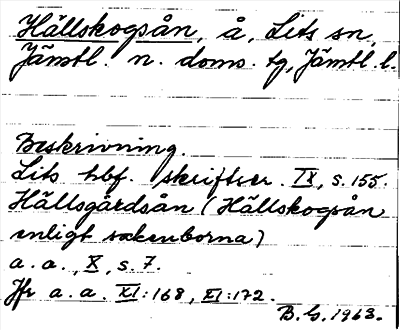 Hällskogsån, å, Lits sn,
Jämtl. n. doms. tg, Jämtl. l.
Beskrivning.
Lits hbf. skrifter. IX, s. 155.
Hällsgårdsån (Hällskogsån
enligt sockenborna)
a. a., X, s. 7.
Jfr a. a. XI:168, XI:172.
B. G. 1963.